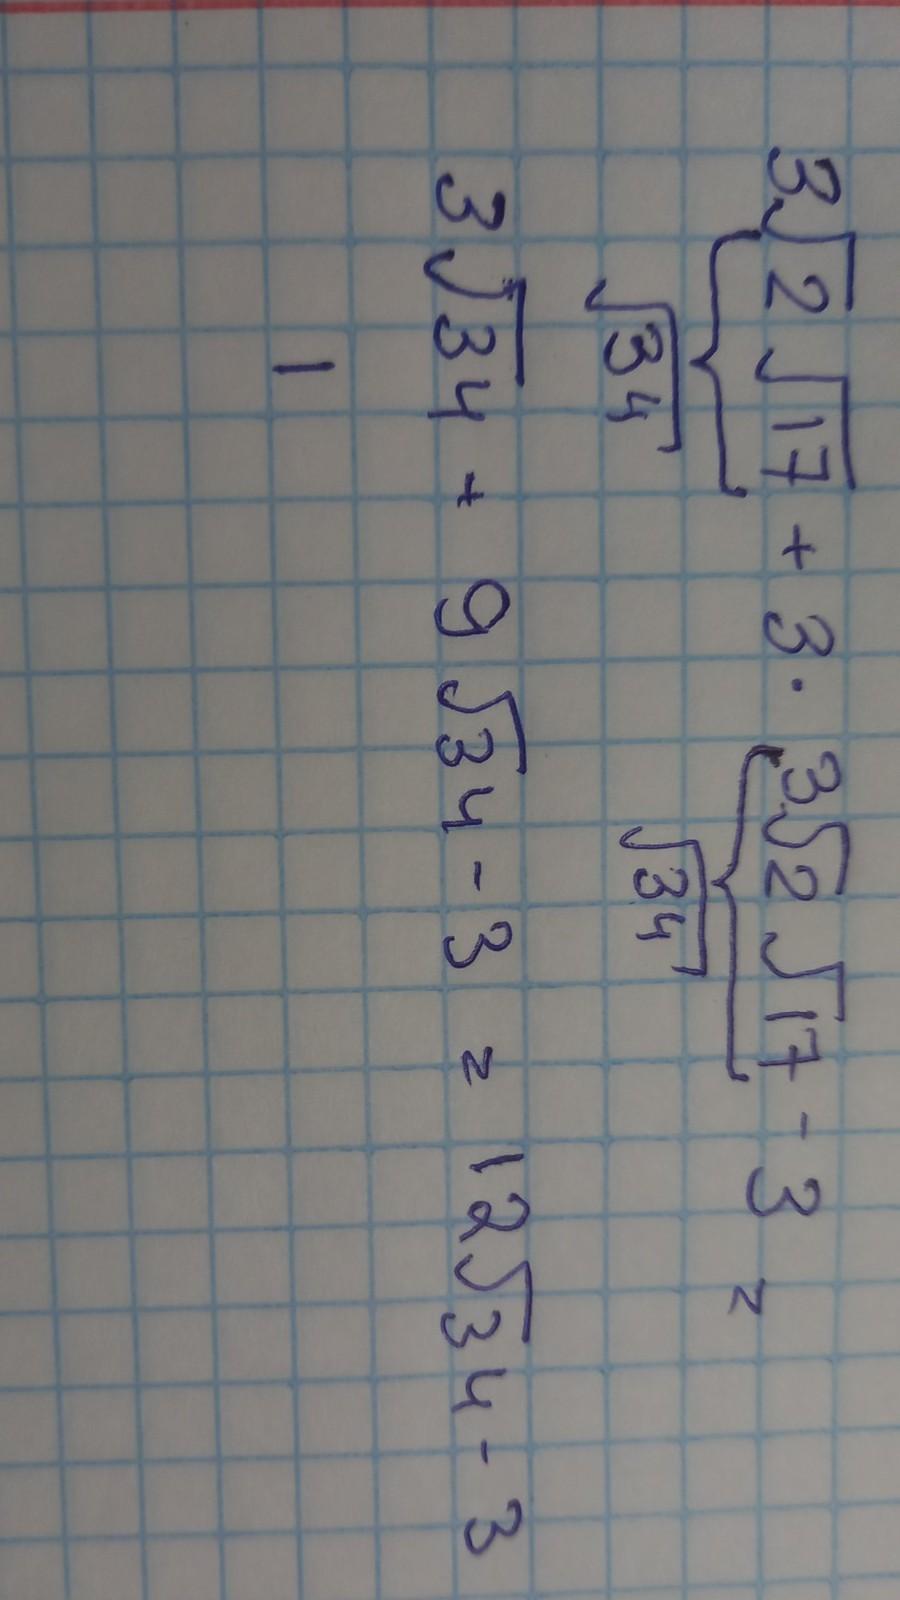 3√2 √17 + 3 · 3√2 √17 - 3 =
√34 √34
3√34 + 9√34 - 3 = 12√34 - 3
1